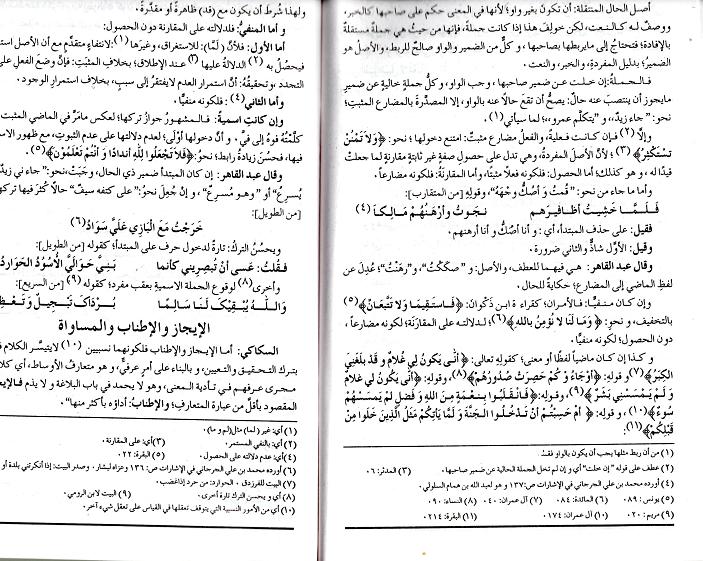 أصل الحال المنتقلة: أن تكون بغير واو؛ لأنها في المعنى حكم على صاحبها كالخبر،
ووصف لـه كالـنعت، لكن خولف هذا إذا كانت جملة، فإنها من حيث هي جملة مستقلة
بالإفادة؛ فتحتاج إلى ما يربطها بصاحبها، و كلٌّ من الضمير والواو صالح للربط، والأصل هو
الضمير؛ بدليل المفردة، والخبر، والنعت.
فـالـجمـلـة: إن خلت عن ضمير صاحبها، وجب الواو، و كلُّ جملةٍ خاليةٍ عن ضميرِ
مايجوز أن ينتصبَ عنه حالٌ: يصحُّ أن تقع حالًا عنه بالواو، إلا المصدَّرةَ بالمضارع المثبتِ؛
نحو: " جاء زيدٌ "، و " يتكلَّم عمرو "؛ لما سيأتي (١)
وإلّا (٢) فـإن كـانـت فـعليةً، والفعلُ مضارعٌ مثبتٌ: امتنع دخولها؛ نحو: ﴿وَلاَ تَمْنُنْ
تَسْتَكْثِرُ﴾ (٣)؛ لأنَّ الأصلَ المفردةُ، وهي تدل على حصولِ صفةٍ غيرِ ثابتةٍ مقارنةٍ لما جعلتْ
قيدًا له، و هو كذلك؛ أما الحصول: فلكونه فعلًا مثبتًا، وأما المقارنةُ: فلكونه مضارعا.
وأما ما جاء من نحو: " قُمتُ وَ أَصُكُّ وجْهَهُ "، وقولِهِ [من المتقارب]:
فَـلَـمَّـا خَشِيتُ أظـافِيرَهـم نَـجَـوتُ وأَرْهَنُهُمْ مَـالِـكَـا (٤)
فقيل: على حذف المبتدأ، أي: و أنا أصُكُّ و أنا أرهنهم.
وقيل: الأوَّل شاذٌّ والثاني ضرورة.
وقال عبد القاهر: هي فيهما للعطف، والأصل: و " صكَكْتُ "، و"رهَنْتُ"؛ عُدِل عن
لفظ الماضي إلى المضارع؛ حكايةً للحال.
وإن كـان مـنـفيًّا: فـالأمـران؛ كقراءة ابن ذَكْوان: ﴿فَـاسـتَـقِيمَـا وَلاَ تَتَّبِعَانِ﴾ (٥)
بالتخفيف، و نحو: ﴿وَمَا لَنَا لاَ نُؤْمِنُ بِالله﴾ (٦)؛ لـدلالتـه على المقارنَة؛ لكونه مضارعاً،
دون الحصول؛ لكونه منفيًّا.
و كذا إن كان ماضياً لفظًا أو معنى؛ كقوله تعالى: ﴿أَنَّـى يَكُونُ لِي غُلاَمٌ وَ قَدْ بَلَغَنِيَ
الكِبَرُ﴾ (٧) و قولِهِ: ﴿أَوْ جَاءُوكُمْ حَصِرَتْ صُدُورُهُمْ﴾ (٨)، وقولِهِ: ﴿أَنَّى يَكُونُ لِي غُلاَمٌ
وَ لَـمْ يَمْسَسْنِي بَشَرٌ﴾ (٩)، و قولِهِ: ﴿فَـانْـقَلَبُـوا بِـنِعْمَةٍ مِنَ اللهِ وَ فَضْلٍ لَمْ يَمْسَسْهُمْ
سُوءٌ﴾ (١٠)، و قوله: ﴿أَمْ حَسِبْتُمْ أَنْ تَدْخُلُـوا الـجَنَّةَ وَ لَمَّا يَأْتِكُمْ مَثَلُ الَّذِينَ خَلَوْا مِنْ
قَبْلِكُمْ﴾ (١١).
(١) من أن ربط مثلها يجب أن يكون بالواو فقط.
(٢) عطف على قوله " إن خلت " أي و إن لم تخل الجملة الحالية عن ضمير صاحبها. (٣) المدثر: ٠٦
(٤) أورده محمد بن علي الجرجاني في الإشارات ص:١٣٧ و هو لعبد الله بن همام السلولي.
(٥) يونس: ٠٨٩ (٦) المائدة: ٠٨٤ (٧) آل عمران: ٠٤٠ (٨) النساء: ٠٩٠
(٩) مريم: ٠٢٠ (١٠) آل عمران: ٠١٧٤ (١١) البقرة: ٠٢١٤
ولهذا شُرط أن يكون مع (قد) ظاهرةً أو مقدَّرةً.
و أما المنفيُّ: فلدلالته على المقارنة دون الحصول:
أما الأول: فلأنَّ (لَمَّا): للاستغراق، وغيرَها (١): لانتفاءٍ متقدِّمٍ مع أن الأصل
فيحصُل به (٢) الدلالةُ عليها (٣) عند الإطلاق؛ بخلاف المثبَتِ: فإنَّ وضعَ الفعلِ على
التجدد، وتحقيقُهُ: أنَّ استمرار العدم لايفتقرُ إلى سببٍ، بخلاف استمرارِ الوجود.
وأما الثاني (٤): فلكونه منفيًّا.
وإن كانتِ اسميةً: فـالـمشهـورُ جوازُ تركها؛ لعكس مامَرَّ في الماضي المثبت
كَلَّمْتُهُ فوهُ إلى فيَّ. و أنَّ دخولها أَوْلَى؛ لعدم دلالتها على عدم الثبوتِ، مع ظهور
فيها، فحسُنَ زيادةُ رابط؛ نحوُ: ﴿فَلاَ تَجْعَلُوا لِلَّهِ أَنْدادًا وَ أَنْتُمْ تَعْلَمُونَ﴾ (٥).
وقال عبد القاهر: إن كان المبتدأ ضميرَ ذي الحال، وجَبَتْ، نحوُ: " جاء زيد
يُسرعُ " أو " وهو مُسرِعٌ "، و إنْ جُعِلَ نحوُ: " على كتفه سيفٌ " حالًا كَثُرَ فيها
[من الطويل]:
خَرَجْتُ مَعَ الْبَازِي عَلَيَّ سَوَادُ (٦)
ويحسُنُ التركُ: تارةً لدخولِ حرف على المبتدأ؛ كقوله [من الطويل]:
فـقُلْتُ: عَسى أَنْ تُبصِرِيني كأَنَّما بَـنِـيَّ حَوَالَيَّ الأُسُودُ الحَوَارِدُ
وأخرى (٨) لوقوع الجملة الاسمية بعقب مفرد؛ كقوله (٩) [من السريع]:
وَاللَّـهُ يُبْقِيكَ لَنَا سَالِمًا بُـرْدَاكَ تَبْجِيلٌ وَ
الإيجاز والإطناب والمساواة
السكاكي: أما الإيـجـاز والإطناب فلكونهما نسبيين (١٠) لايتيسَّر الكلام
بتركِ التحقيق والتعيين، و بالبناء على أمرٍ عرفيٍّ، و هو متعارف الأوساط، أي
مـجرى عـرفهـم فـي تـأدية المعنى، وهو لا يحمد في باب البلاغة و لا يذم
المقصود بأقلَّ من عبارة المتعارف؛ والإطنابُ: أداؤه بأكثر منها.
(١) أي: غير (لما) مثل (لم و ما).
(٢) أي: بالنفي المستمر. (٣) أي: على المقارنة.
(٤) أي: عدم دلالته على الحصول. (٥) البقرة: ٠٢٢
(٦) أورده محمد بن علي الجرجاني في الإشارات ص: ١٣٦ وعزاه لبشار. وصدر البيت: إذا أنكرتني بلدة أو
(٧) البيت للفرزدق. الحوارد: من حرد إذا غضب.
(٨) أي و يحسن الترك تارة أخرى. (٩) البيت لابن الرومي.
(١٠) أي من الأمور النسبية التي يتوقف تعقلها في القياس على تعقل شيء آخر.